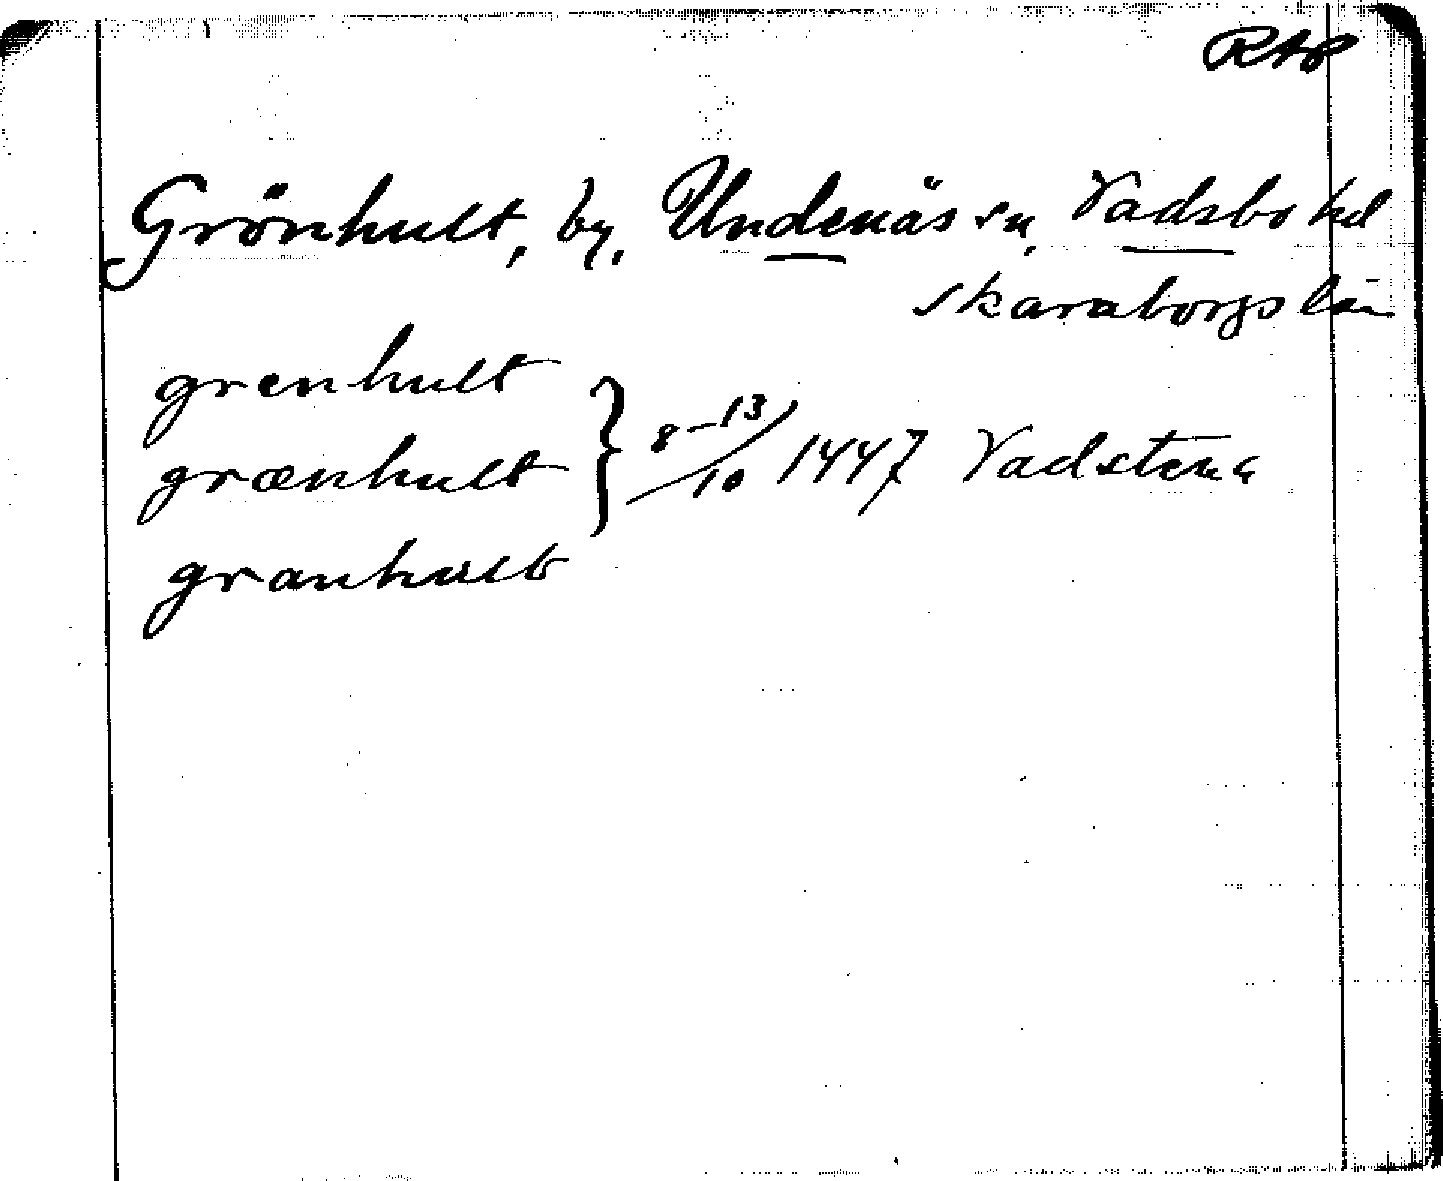 RAP
Grönhult, by, Undenäs sn, Vadsbo hd
Skaraborgs län
grenhult
grænhult } 8-13/10 1447 Vadstena
granhult